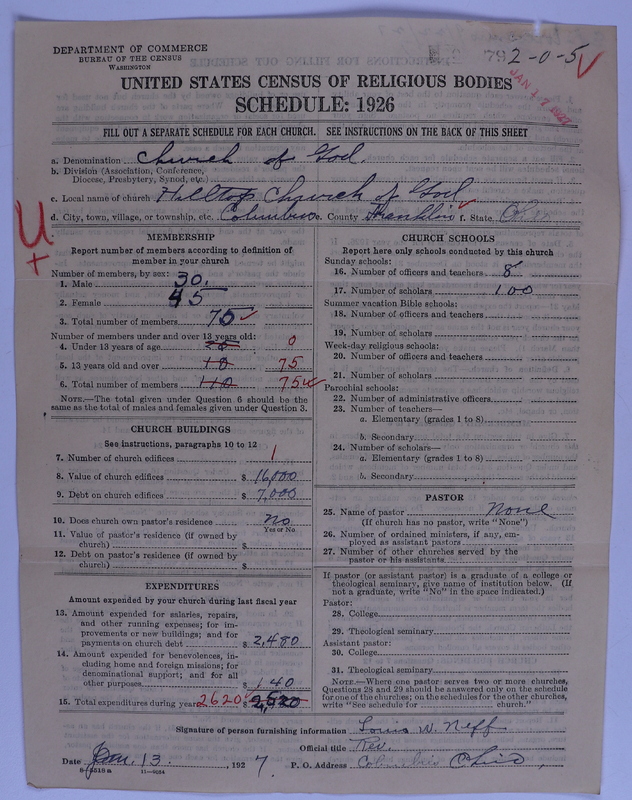 DEPARTMENT OF COMMERCE
BUREAU OF THE CENSUS
WASHINGTON
792-0-5
UNITED STATES CENSUS OF RELIGIOUS BODIES
SCHEDULE: 1926
FILL OUT A SEPARATE SCHEDULE FOR EACH CHURCH. SEE INSTRUCTIONS ON THE BACK OF THIS SHEET
a. Denomination Church of God
b. Division (Association, Conference, Diocese, Presbytery, Synod, etc.)
c. Local name of church Hilltop Church of God
d. City, town, village, or township, etc. Columbus e. County Franklin f. State Ohio
U
MEMBERSHIP
Report number of members according to definition of member in your church
Number of members, by sex:
1. Male 30
2. Female 45
3. Total number of members 75
Number of members under and over 13 years old:
4. Under 13 years of age 0
5. 13 years old and over 75
6. Total number of members 110 75
NOTE.—The total given under Question 6 should be the same as the total of males and females given under Question 3.
CHURCH BUILDINGS
See instructions, paragraphs 10 to 12
7. Number of church edifices 1
8. Value of church edifices $ 16,000
9. Debt on church edifices $ 7,000
10. Does church own pastor's residence No
Yes or No
11. Value of pastor's residence (if owned by church) $
12. Debt on pastor's residence (if owned by church) $
EXPENDITURES
Amount expended by your church during last fiscal year
13. Amount expended for salaries, repairs, and other running expenses; for improvements or new buildings; and for payments on church debt $ 2,480
14. Amount expended for benevolences, including home and foreign missions; for denominational support; and for all other purposes $ 140
15. Total expenditures during year 2620
CHURCH SCHOOLS
Report here only schools conducted by this church
Sunday schools:
16. Number of officers and teachers 8
17. Number of scholars 100
Summer vacation Bible schools:
18. Number of officers and teachers
19. Number of scholars
Week-day religious schools:
20. Number of officers and teachers
21. Number of scholars
Parochial schools:
22. Number of administrative officers
23. Number of teachers—
a. Elementary (grades 1 to 8)
b. Secondary
24. Number of scholars—
a. Elementary (grades 1 to 8)
b. Secondary
PASTOR
25. Name of pastor None
(If church has no pastor, write "None")
26. Number of ordained ministers, if any, employed as assistant pastors
27. Number of other churches served by the pastor or his assistants
If pastor (or assistant pastor) is a graduate of a college or theological seminary, give name of institution below. (If not a graduate, write "No" in the space indicated.)
Pastor:
28. College
29. Theological seminary
Assistant pastor:
30. College
31. Theological seminary
NOTE.—Where one pastor serves two or more churches, Questions 28 and 29 should be answered only on the schedule for one of the churches; on the schedules for the other churches, write "See schedule for church."
Signature of person furnishing information Louis W. Neff
Official title Rev.
Date Jan. 13, 1927 P. O. Address Columbus Ohio
8-5518a 11-9024